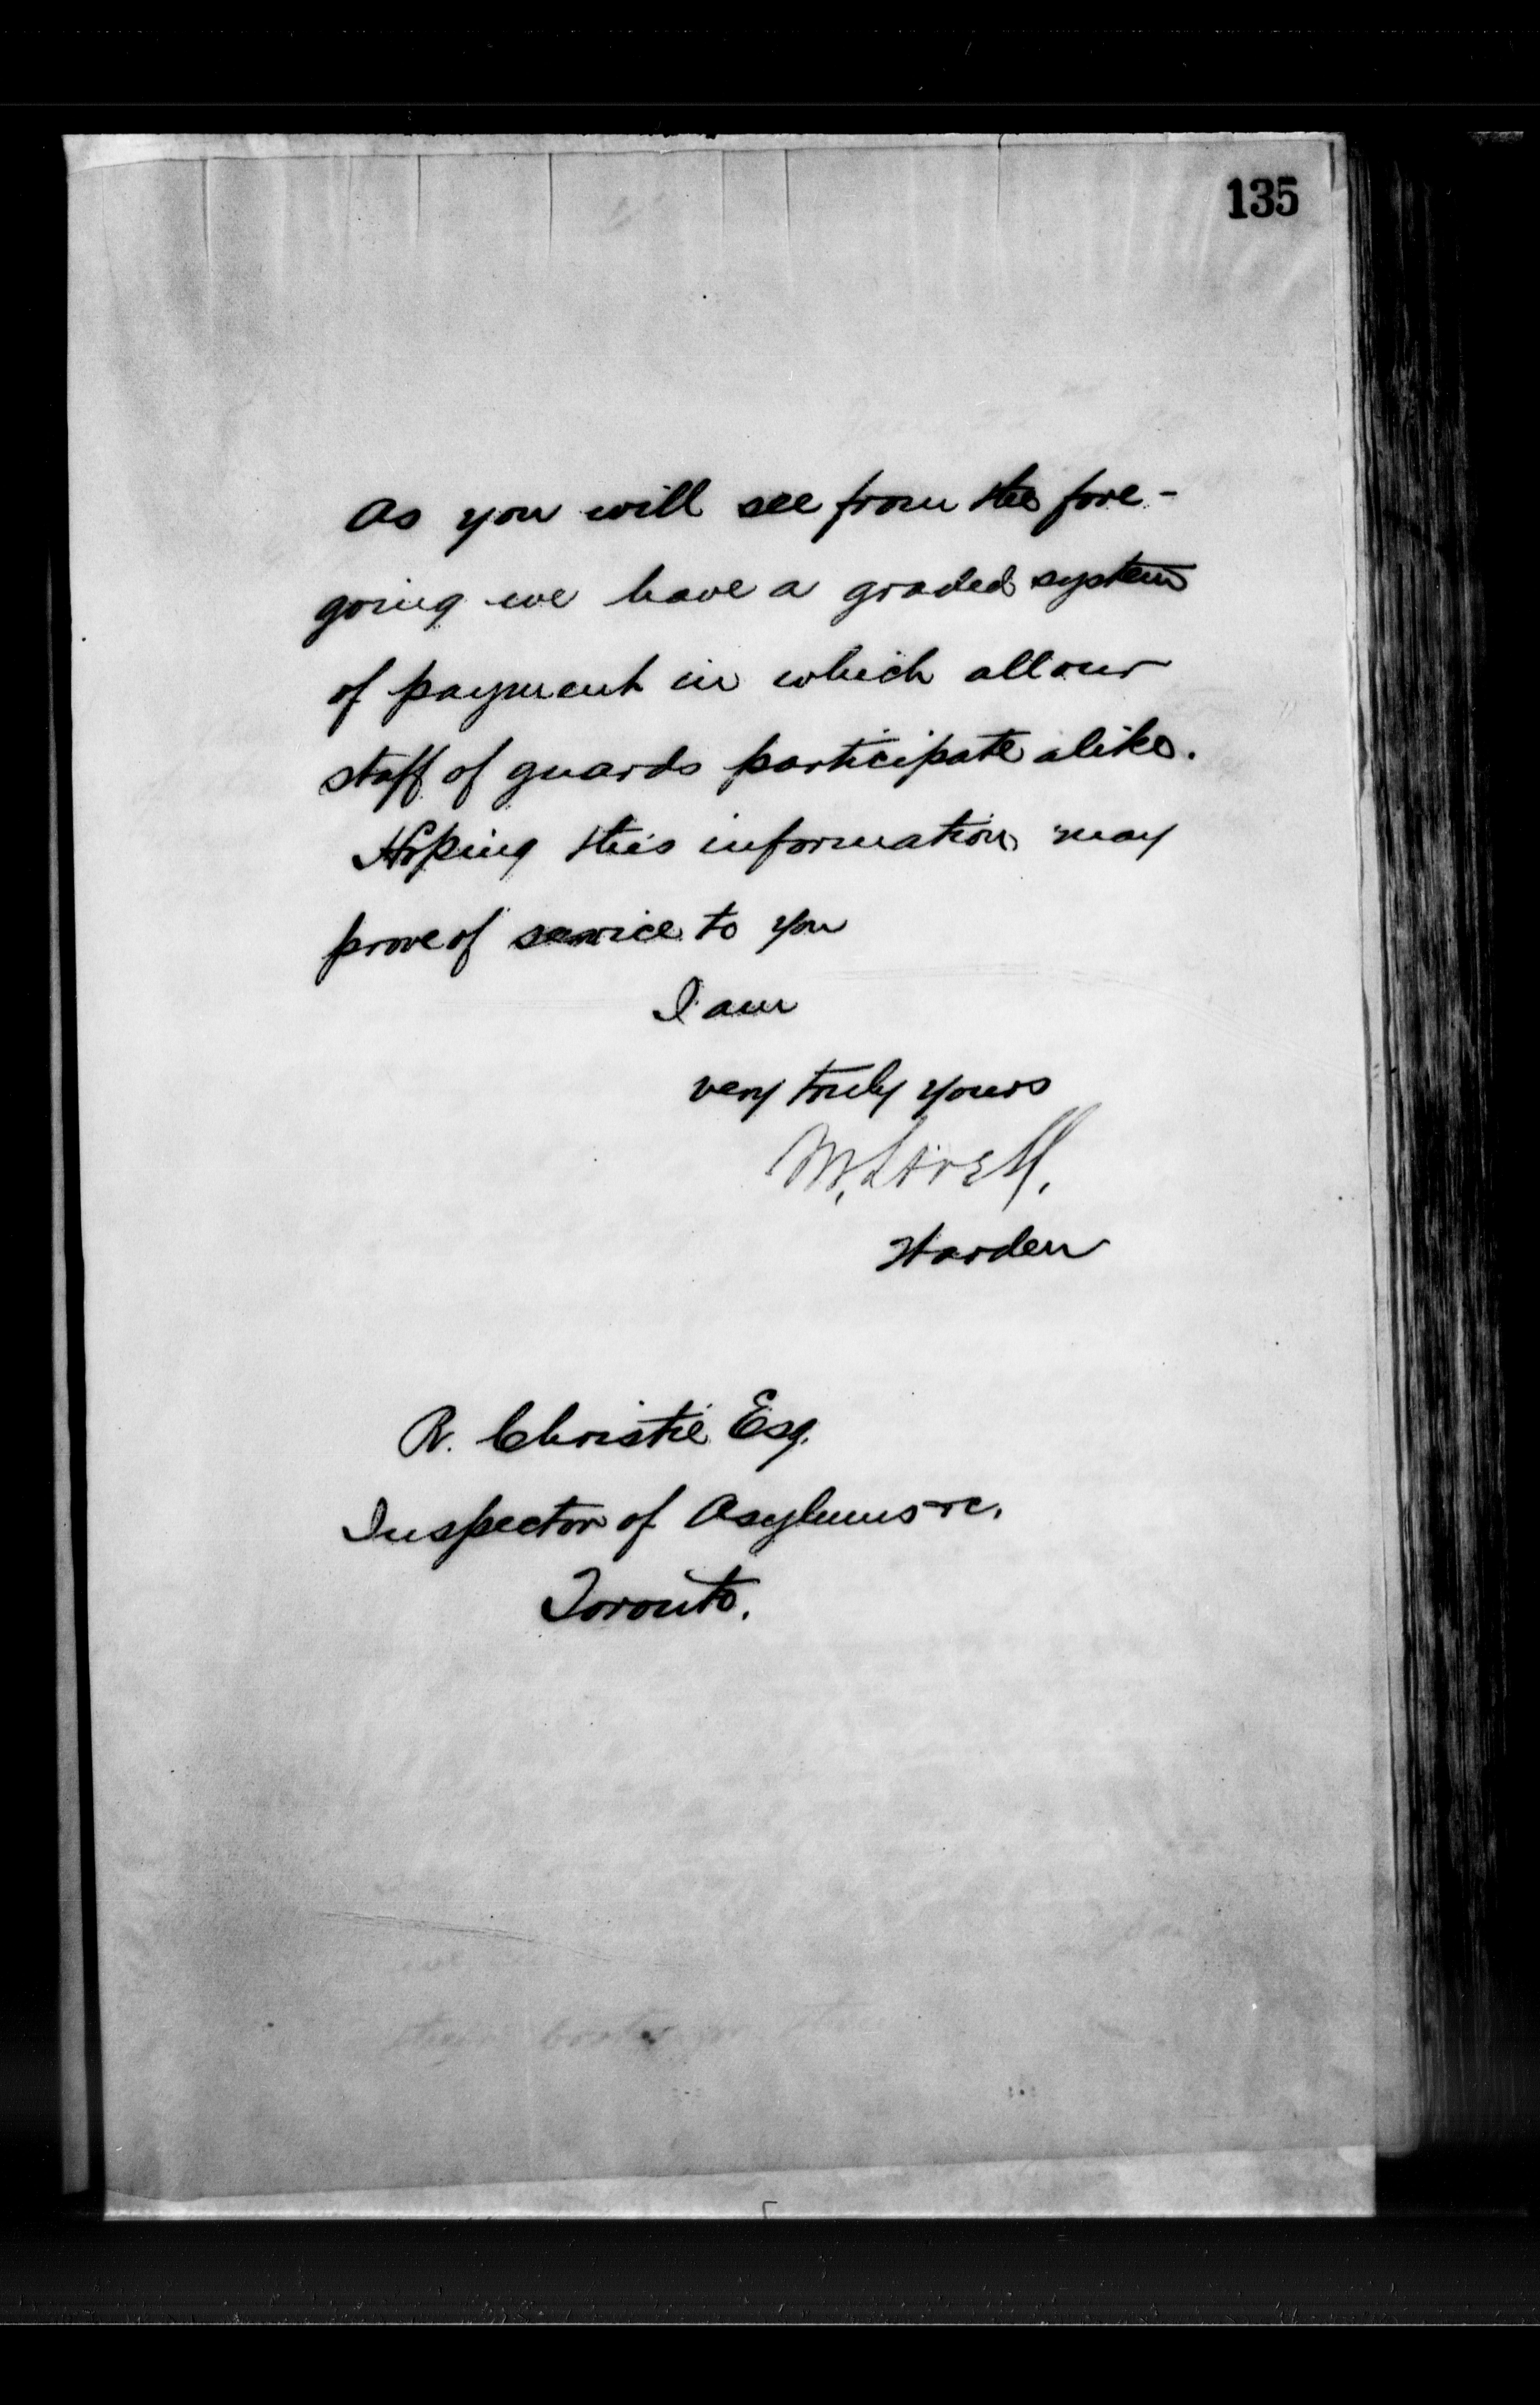 135
As you will see from the fore-
going we have a graded system
of payment in which all our
staff of guards participate alike.
Hoping this information may
prove of service to you
I am
very truly yours
M. Lavell.
Warden
R. Christie Esq.
Inspector of Asylums &c.
Toronto.